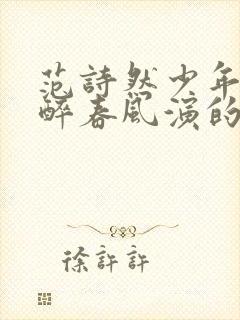 范詩然少年
醉春風演的
徐許許